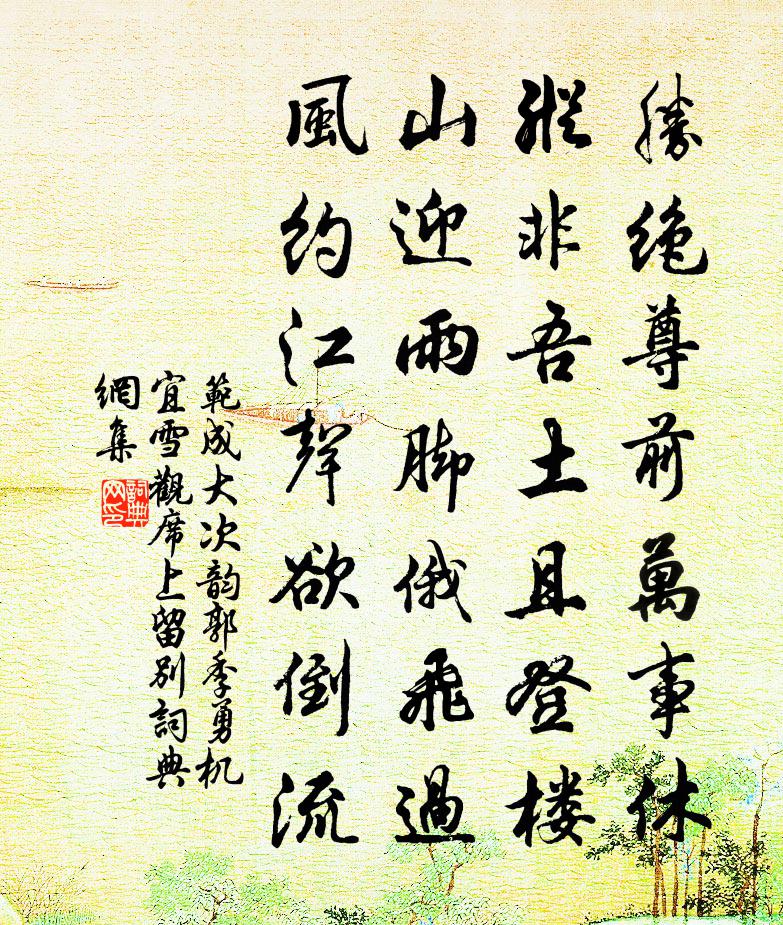 勝絶尊前萬事休
縱非吾土且登楼
山迎雨脚俄飛過
風約江聲欲倒流
範成大次韵郭季勇机
宜雪觀席上留別詞典
網集
詞典
网印